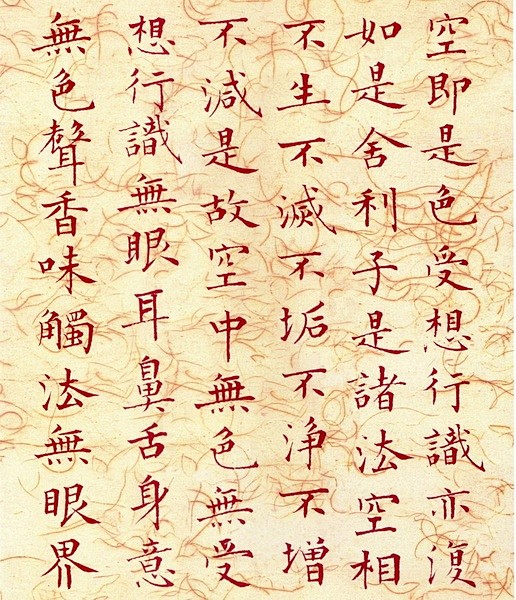 空即是色受想行識亦復
如是舍利子是諸法空相
不生不滅不垢不淨不增
不減是故空中無色無受
想行識無眼耳鼻舌身意
無色聲香味觸法無眼界